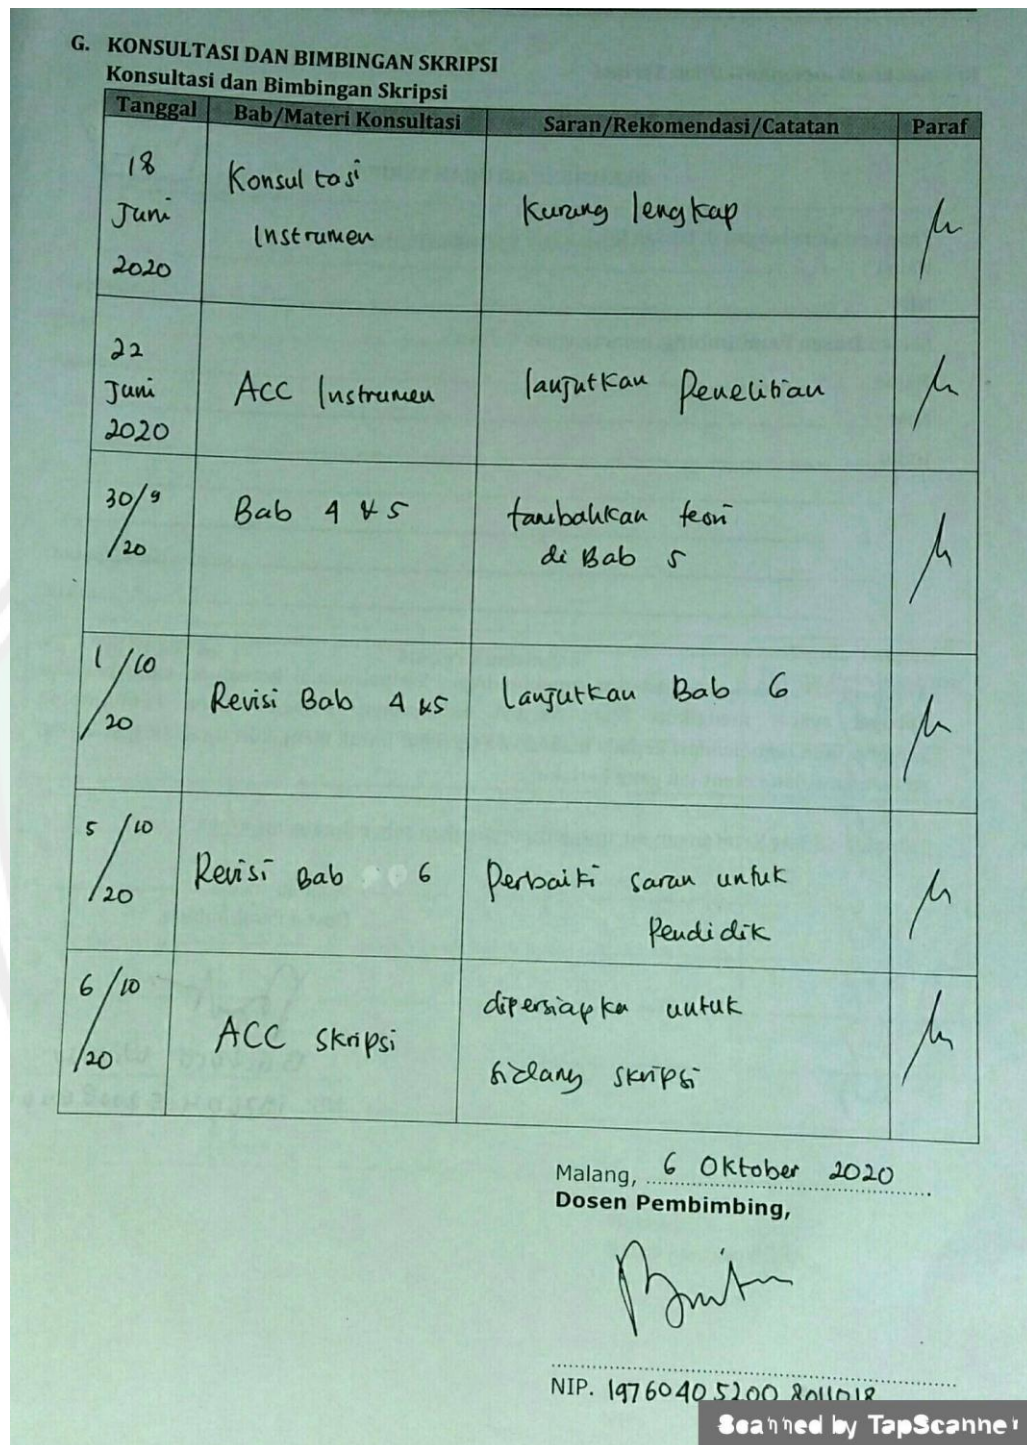 G. KONSULTASI DAN BIMBINGAN SKRIPSI
Konsultasi dan Bimbingan Skripsi
Tanggal Bab/Materi Konsultasi Saran/Rekomendasi/Catatan Paraf
18
Juni
2020
Konsultasi
Instrumen
Kurang lengkap
22
Juni
2020
ACC Instrumen
lanjutkan Penelitian
30/9
/20
Bab 4 & 5
tambahkan teori
di Bab 5
1/10
/20
Revisi Bab 4 & 5
Lanjutkan Bab 6
5/10
/20
Revisi Bab 6
Perbaiki saran untuk
Pendidik
6/10
/20
ACC Skripsi
dipersiapka untuk
sidang skripsi
Malang, 6 Oktober 2020
Dosen Pembimbing,
NIP. 19760405200 8011018
Scanned by TapScanner